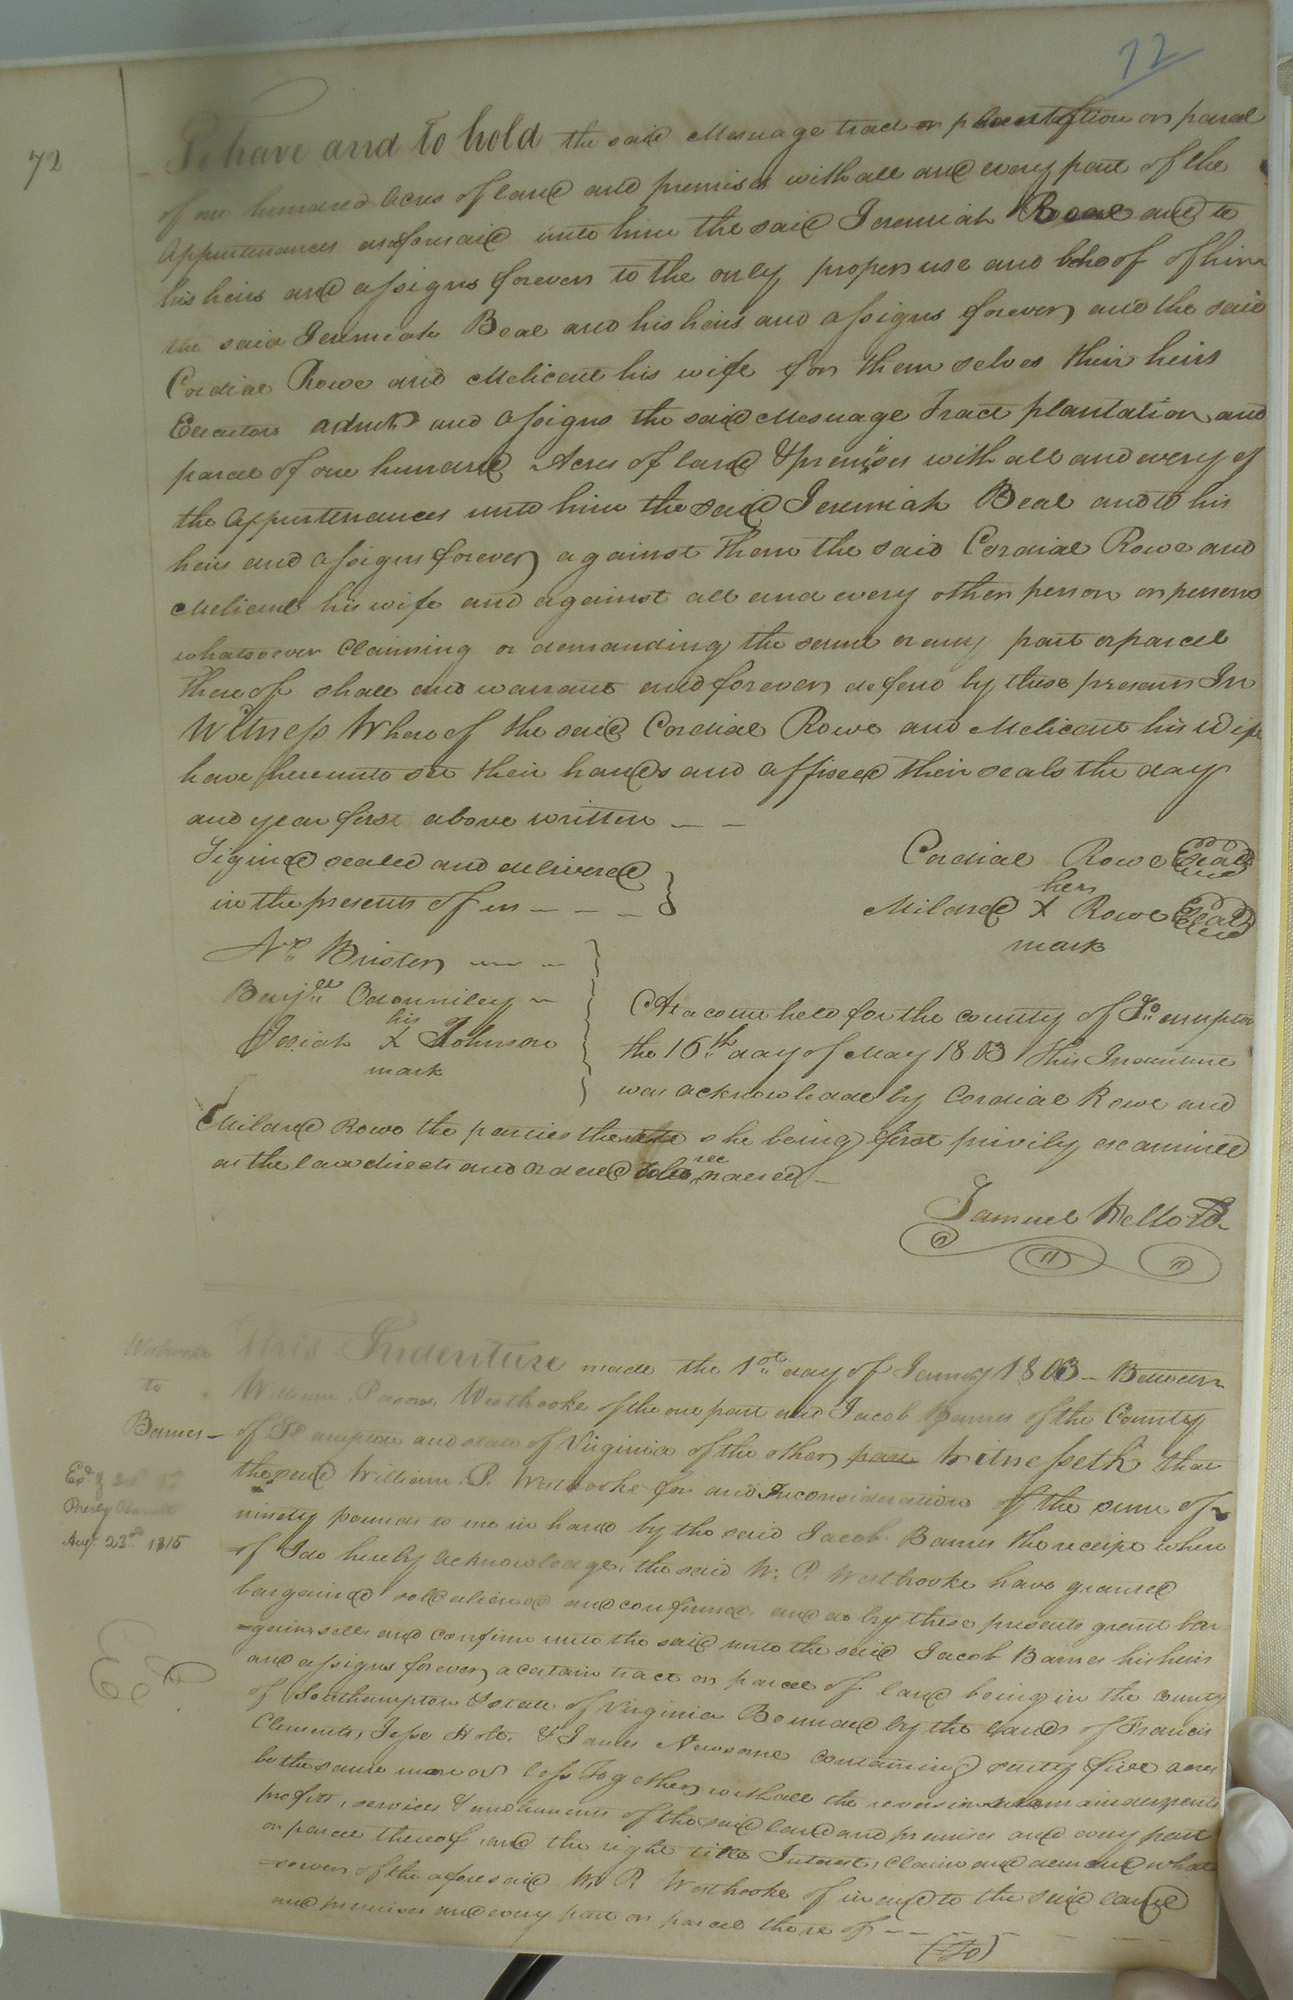 72
72
To have and to hold the said Mesuage tract or plantation or parcel
of one hundred Acres of land and premises with all and every part of the
Appurtenances as aforesaid unto him the said Jeremiah Beal and to
his heirs and assigns forever to the only proper use and behoof of him
the said Jeremiah Beal and his heirs and assigns forever, and the said
Cordial Rowe and Melicent his wife for them selves their heirs
Executors admrs and assigns the said Mesuage Tract plantation and
parcel of one hundred Acres of land & premises with all and every of
the Appurtenances unto him the said Jeremiah Beal and to his
heirs and assigns forever, against them the said Cordial Rowe and
Melicent his wife and against all and every other person or persons
whatsoever Claiming or demanding the same or any part or parcel
thereof shall and warrant and forever defend by these presents In
Witness Whereof the said Cordial Rowe and Melicent his Wife
have hereunto set their hands and affixed their seals the day
and year first above written
Signed sealed and delivered
in the presents of us
Cordial Rowe Seal
her
Mildred X Rowe Seal
mark
Benjn
his
Josiah X Johnson
mark
At a court held for the county of So ampton
the 16th day of May 1803 This Indenture
was acknowledged by Cordial Rowe and
Mildred Rowe the parties she being first privily examined
as the law directs and ordered to be recorded
Samuel Kello
Westbrooke
to
Barnes
Aug. 23rd 1815
Exd
This Indenture made the 1st day of January 1803 Between
William Parsons Westbrooke of the one part and Jacob Barnes of the County
of So ampton and state of Virginia of the other part Witnesseth that
the said William P. Westbrooke for and In consideration of the sum of
ninety pounds to me in hand by the said Jacob Barnes the receipt where
of I do hereby acknowledge, the said W. P. Westbrooke have granted
bargained sold aliened and confirmed, and do by these presents grant bar
gain, sell and confirm unto the said unto the said Jacob Barnes his heirs
and assigns forever, a certain tract or parcel of land being in the county
of Southampton & state of Virginia Bounded by the lands of Francis
Clements, Jesse Holt, & James Newsome containing sixty five acres
be the same more or less Together with all the reversions remainders rents
profits, services & of the said land and premises and every part
or parcel thereof, and the right title Interest, claim and demand what
soever of the aforesaid W. P. Westbrooke of in and to the said land
and premises and every part or parcel there of
(To)